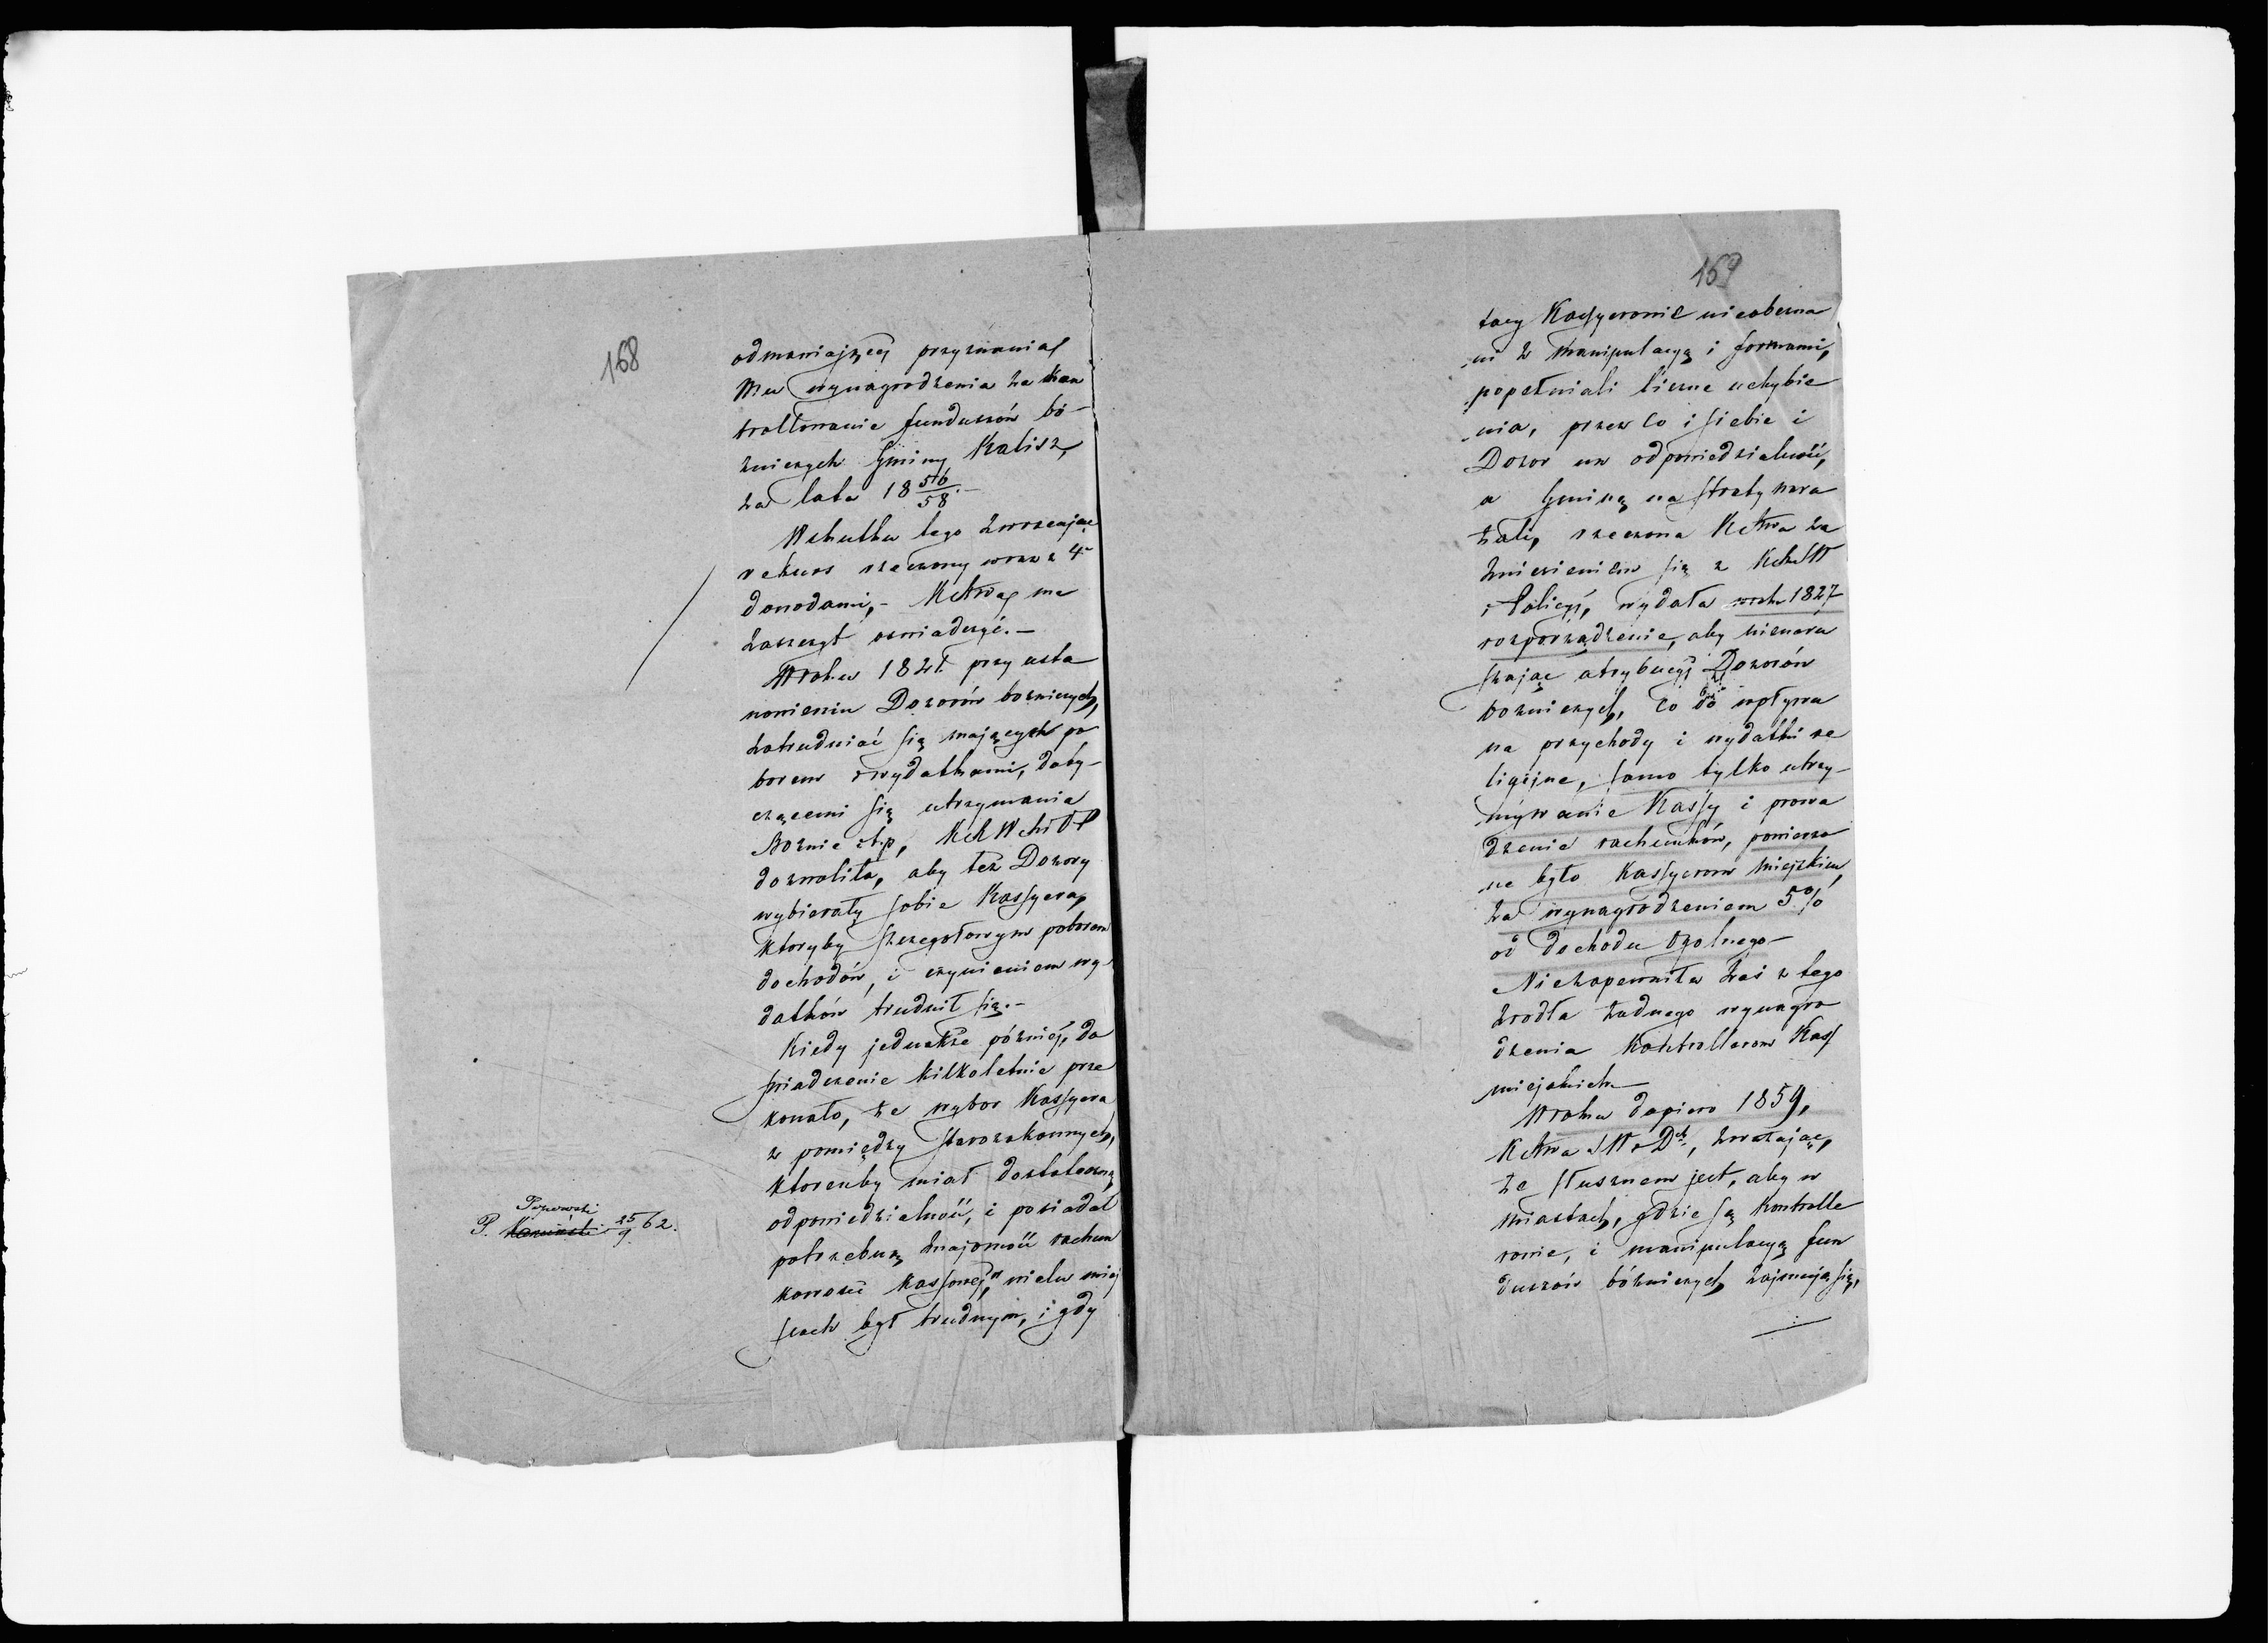 168
odmawiającej przyznania
Mu wynagrodzenia za kon
trollowanie funduszów bó-
zniczych Gminy Kalisz,
za lata 18 56/58.-
Wskutku tego zwracając
rekurs rzeczony wraz z 4
dowodami,- ma
zaszczyt oswiadczyć.-
W roku 1821. przy usta
nowieniu Dozorów boznicznych,
zatrudniać się mających po
borem i wydatkami, doty-
czącemi się utrzymania
Boznic itp,
dozwoliła, aby też Dozory
wybierały sobie Kassyera,
ktoryby szczegołowym poborem
dochodów, i czynieniem wy-
datków trudnił się.-
Kiedy jednakże pózniej, do
swiadczenie kilkoletnie prze
konało, że wybor Kassyera
z pomiędzy starozakonnych,
ktorenby miał dostateczną
odpowiedzialność, i posiadał
potrzebną znajomość rachun
kowosci kassowej, w wielu miej
scach był trudnym, i gdy
P. 25/9 62.
169
tacy Kassyerowie nieobezna
ni z manipulacyą i formami,
popełniali liczne uchybie
nia, przez co i siebie i
Dozor na odpowiedzialność,
a Gminę na straty nara
żali, rzeczona za
zniesieniem się z
i Policyi, wydała w roku 1827
rozporządzenie, aby nienaru
szając atrybucyj Dozorów
bozniczych, co do wpływu
na przychody i wydatki re
ligijne, samo tylko utrzy-
mywanie Kassy i prowa
dzenie rachunków, powierzo
ne było Kassyerom miejskim,
za wynagrodzeniem 5%
od dochodu ogolnego-
Niezapewniła zaś z tego
zrodła żadnego wynagro
dzenia Kontrollerom Kass
miejskich
W roku dopiero 1859,
zważając,
że słusznem jest, aby w
miastach, gdzie są Kontrolle
rowie, i manipulacyą fun
duszów bózniczych zajmują się,